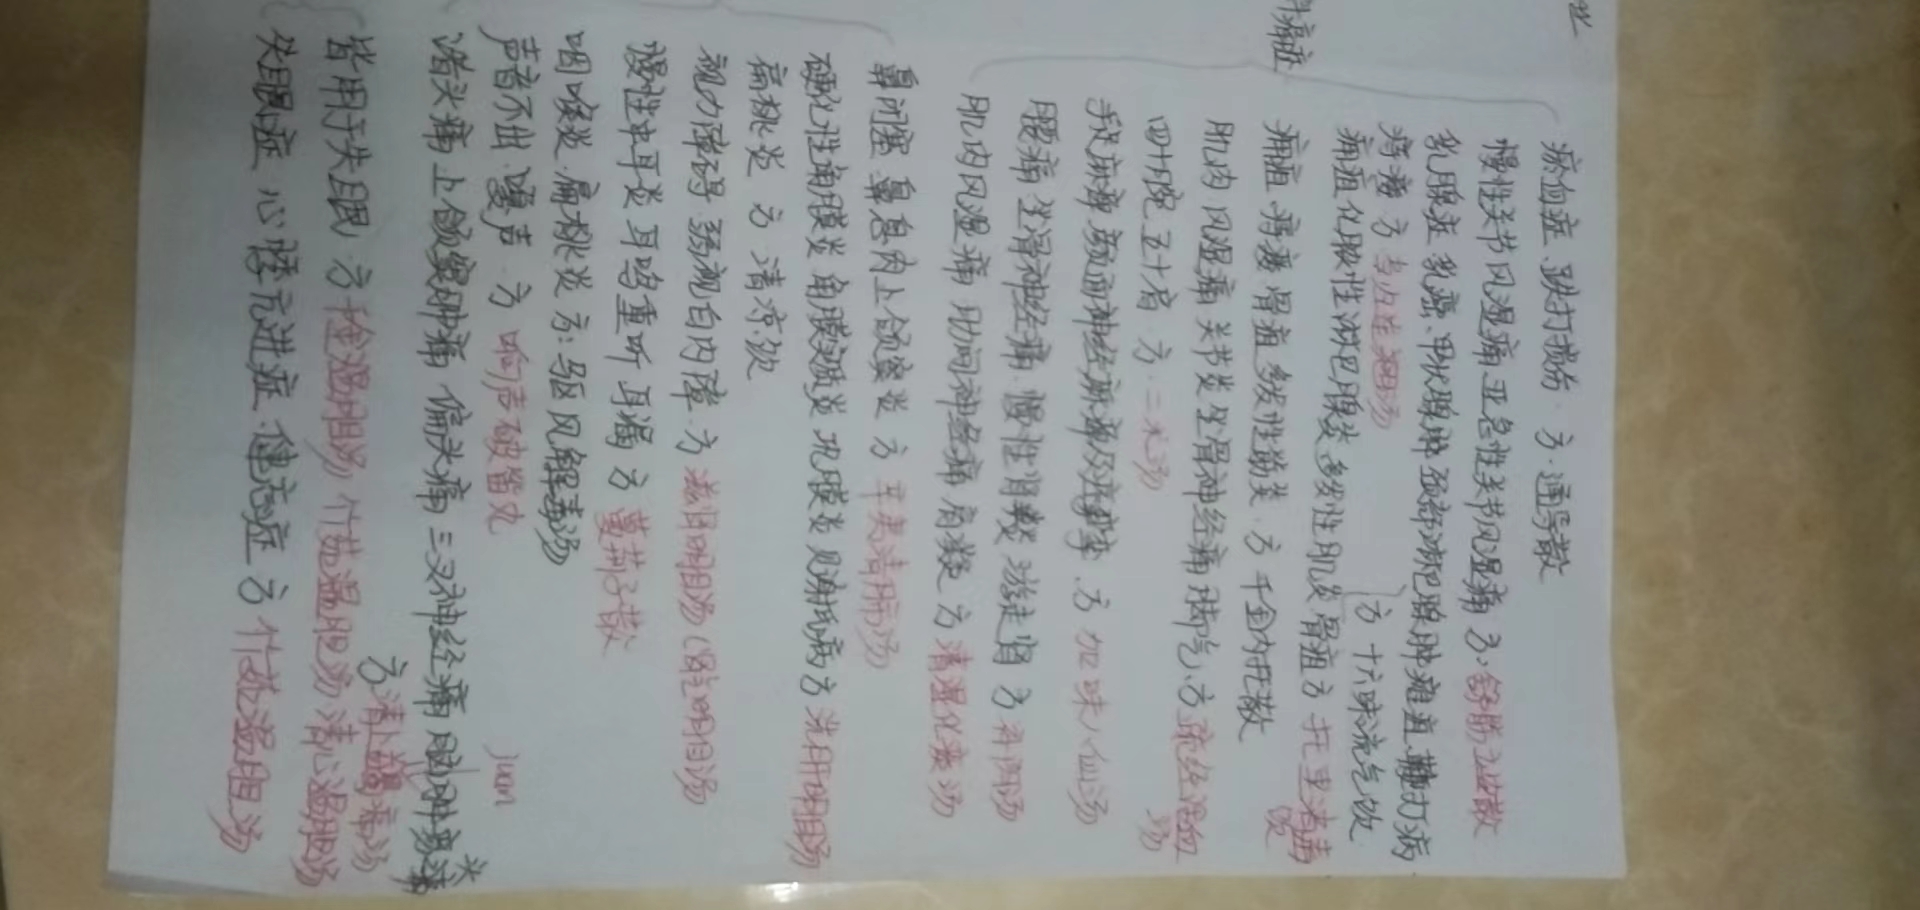 瘀血症、跌打损伤·方·通导散
慢性关节风湿痛 亚急性关节风湿痛 方·舒筋立安散
乳腺症 乳癌、甲状腺肿 颈部淋巴腺肿
痔瘘 方
方 十六味流气饮
痈疽 化脓性淋巴腺炎、多发性肌炎 骨疽 方 托里消毒饮
痈疽 痔瘘 骨疽 多发性筋炎·方 千金内托散
肌肉风湿痛 关节炎 坐骨神经痛 脚气、方 疏经活血汤
四十腕 五十肩·方·二术汤
手足麻痺 颜面神经麻痺及痉挛·方 加味八仙汤
腰痛 坐骨神经痛·慢性肾炎 游走肾 方 补阴汤
肌肉风湿痛 肋间神经痛 肩凝 方 清湿化痰汤
鼻闭塞 鼻息肉 上颌窦炎 方 辛夷清肺汤
硬化性角膜炎 角膜炎 巩膜炎 方 洗肝明目汤
扁桃炎 方 清凉饮
视力障碍 弱视 白内障·方 滋肾明目汤
慢性中耳炎 耳鸣 重听 耳漏 方 蔓荆子散
咽喉炎·扁桃炎 方:驱风解毒汤
声音不出·嗄声·方 响声破笛丸
诸头痛 上颌窦肿痛 偏头痛 三叉神经痛
方 清上蠲痛汤
juan
皆用于失眠·方 竹茹温胆汤
失眠症 心悸亢进症·健忘症 方 竹茹温胆汤